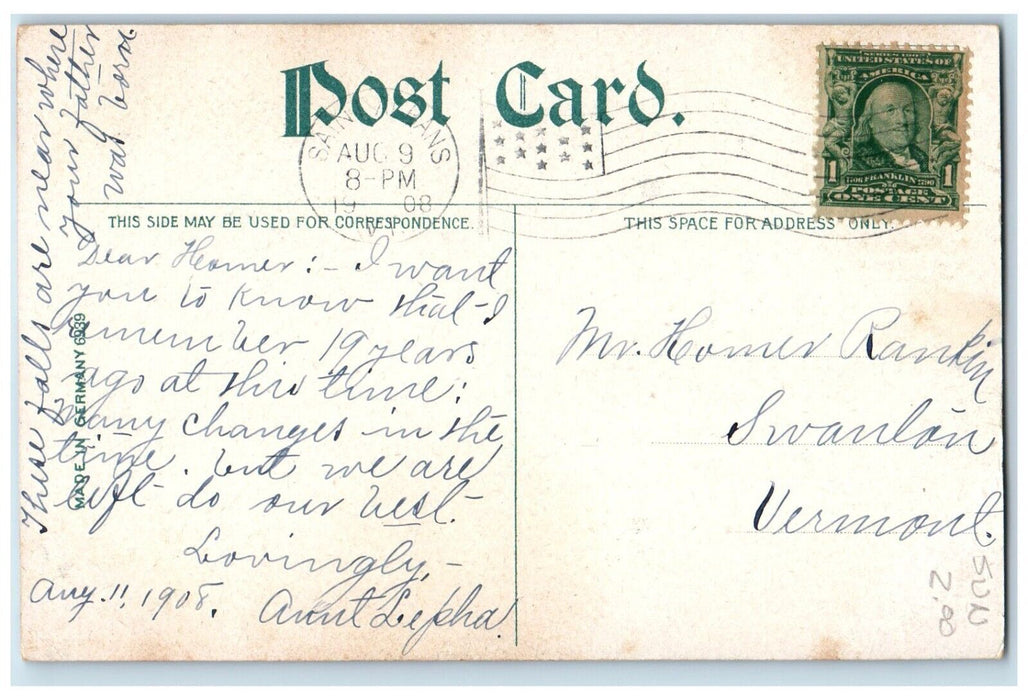 Post Card.
SERIES 1902
UNITED STATES OF
AMERICA
1 1706 FRANKLIN 1790 1
POSTAGE
ONE CENT
SAINT ANS
AUG 9
8-PM
19 08
VT
THIS SIDE MAY BE USED FOR CORRESPONDENCE.
THIS SPACE FOR ADDRESS ONLY.
These falls are near where
your father
was born.
Dear Homer:- I want
you to know that I
remember 19 years
ago at this time:
Many changes in the
time. but we are
left do our best.
Lovingly,-
Aug. 11, 1908. Aunt Lepha
MADE IN GERMANY 6939
Mr. Homer Rankin
Swanton
Vermont.
2.00